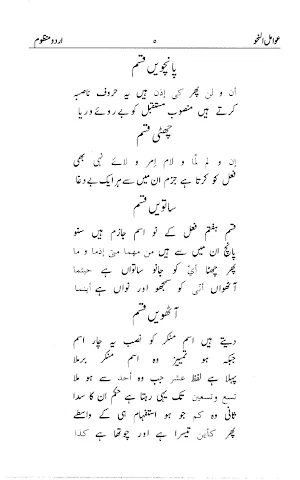 عوامل النحو ۵ اردو منظوم
پانچویں قسم
أن و لن پھر كى إذن ہیں یہ حروف ناصبہ
کرتے ہیں منصوب مستقبل کو بے روئے وریا
چھٹی قسم
إن و لم لمّا و لام امر و لائے نہی بھی
فعل کو کرتا ہے جزم ان میں سے ہر ایک بے دغا
ساتویں قسم
قسم ہفتم فعل کے نو اسم جازم ہیں سنو
پانچ ان میں سے ہیں من مهما متى إذما و ما
پھر چھٹا أيّ کو جانو ساتواں ہے حيثما
آٹھواں أنّى کو سمجھو اور نواں ہے أينما
آٹھویں قسم
دیتے ہیں اسم منکر کو نصب یہ چار اسم
جبکہ ہو تمییز وہ اسم منکر برملا
پہلا ہے لفظ عشر جب وہ أحد سے ہو ملا
تسع وتسعين تک یہی رہتا ہے حکم ان کا سدا
ثانی وہ كم جو ہو استفہام ہی کے واسطے
پھر كأين تیسرا ہے اور چوتھا ہے كذا